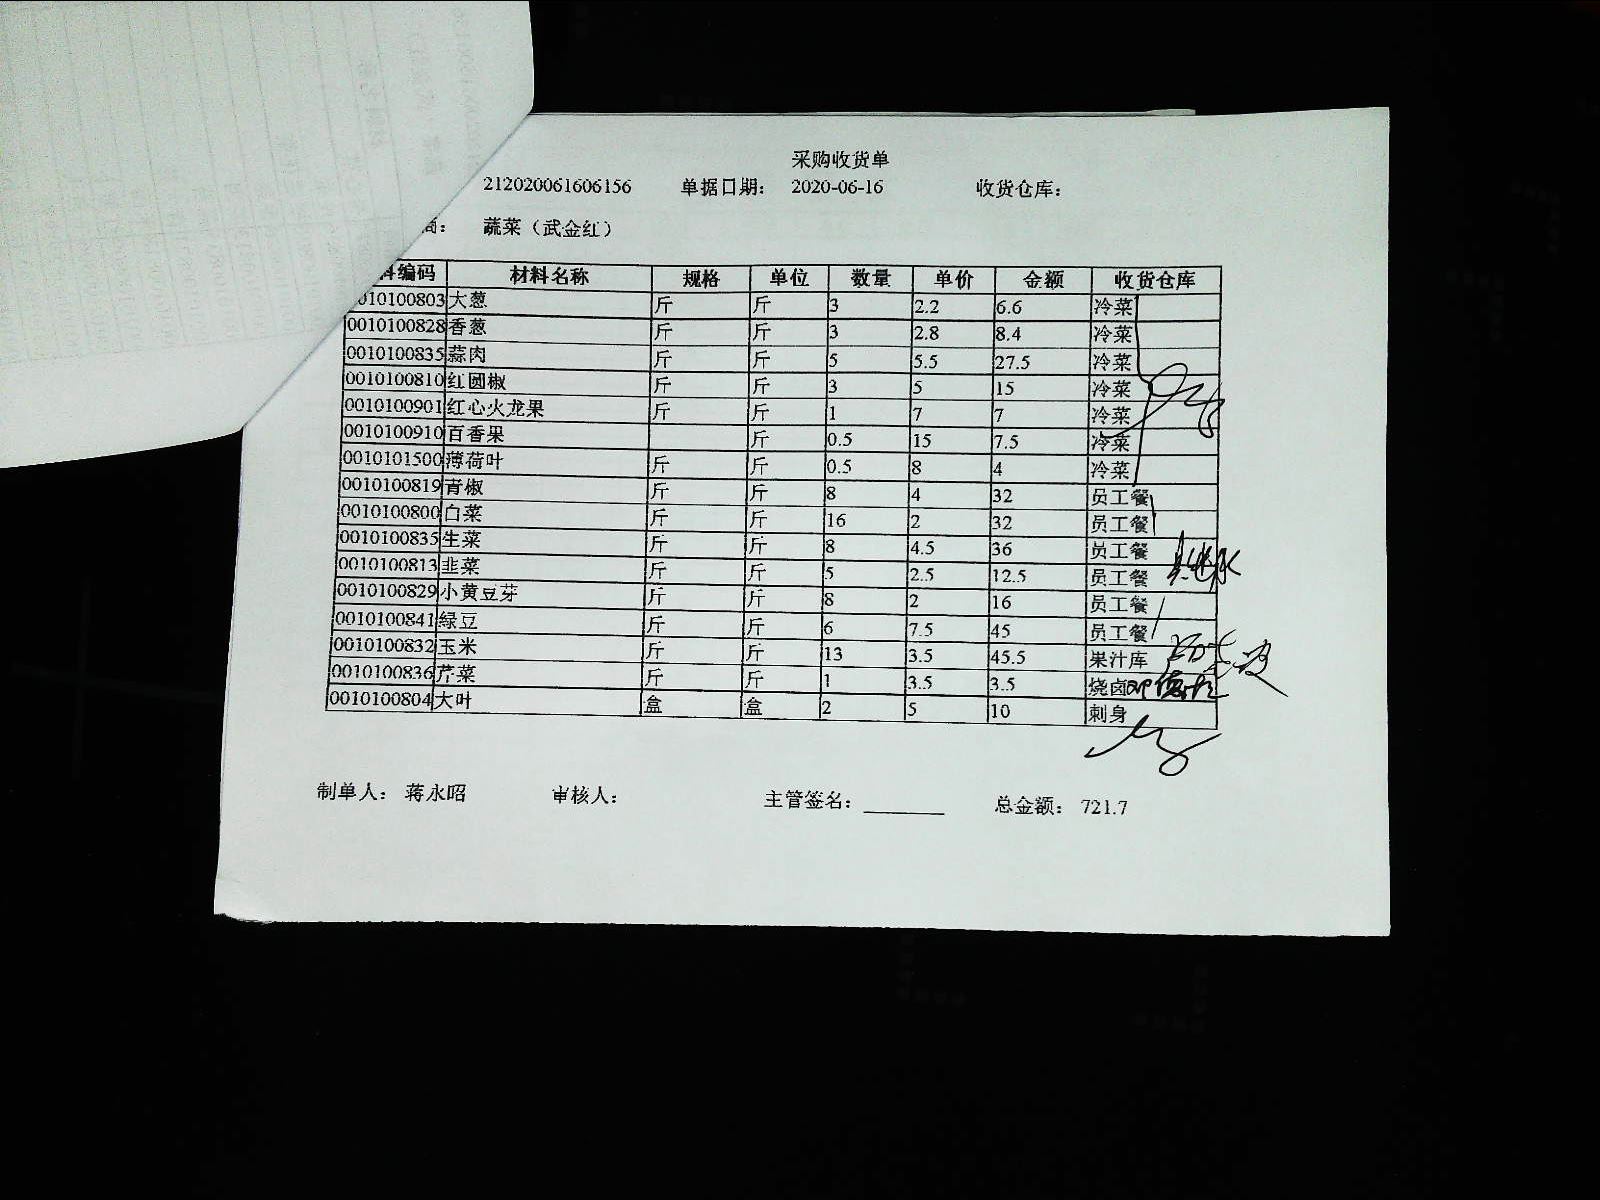 采购收货单
212020061606156 单据日期: 2020-06-16 收货仓库:
商: 蔬菜（武金红）
料编码 材料名称 规格 单位 数量 单价 金额 收货仓库
010100803 大葱 斤 斤 3 2.2 6.6 冷菜
0010100828 香葱 斤 斤 3 2.8 8.4 冷菜
0010100835 蒜肉 斤 斤 5 5.5 27.5 冷菜
0010100810 红圆椒 斤 斤 3 5 15 冷菜
0010100901 红心火龙果 斤 斤 1 7 7 冷菜
0010100910 百香果 斤 0.5 15 7.5 冷菜
0010101500 薄荷叶 斤 斤 0.5 8 4 冷菜
0010100819 青椒 斤 斤 8 4 32 员工餐
0010100800 白菜 斤 斤 16 2 32 员工餐
0010100835 生菜 斤 斤 8 4.5 36 员工餐
0010100813 韭菜 斤 斤 5 2.5 12.5 员工餐
0010100829 小黄豆芽 斤 斤 8 2 16 员工餐
0010100841 绿豆 斤 斤 6 7.5 45 员工餐
0010100832 玉米 斤 斤 13 3.5 45.5 果汁库
0010100836 芹菜 斤 斤 1 3.5 3.5 烧卤
0010100804 大叶 盒 盒 2 5 10 刺身
制单人: 蒋永昭 审核人: 主管签名: 总金额: 721.7